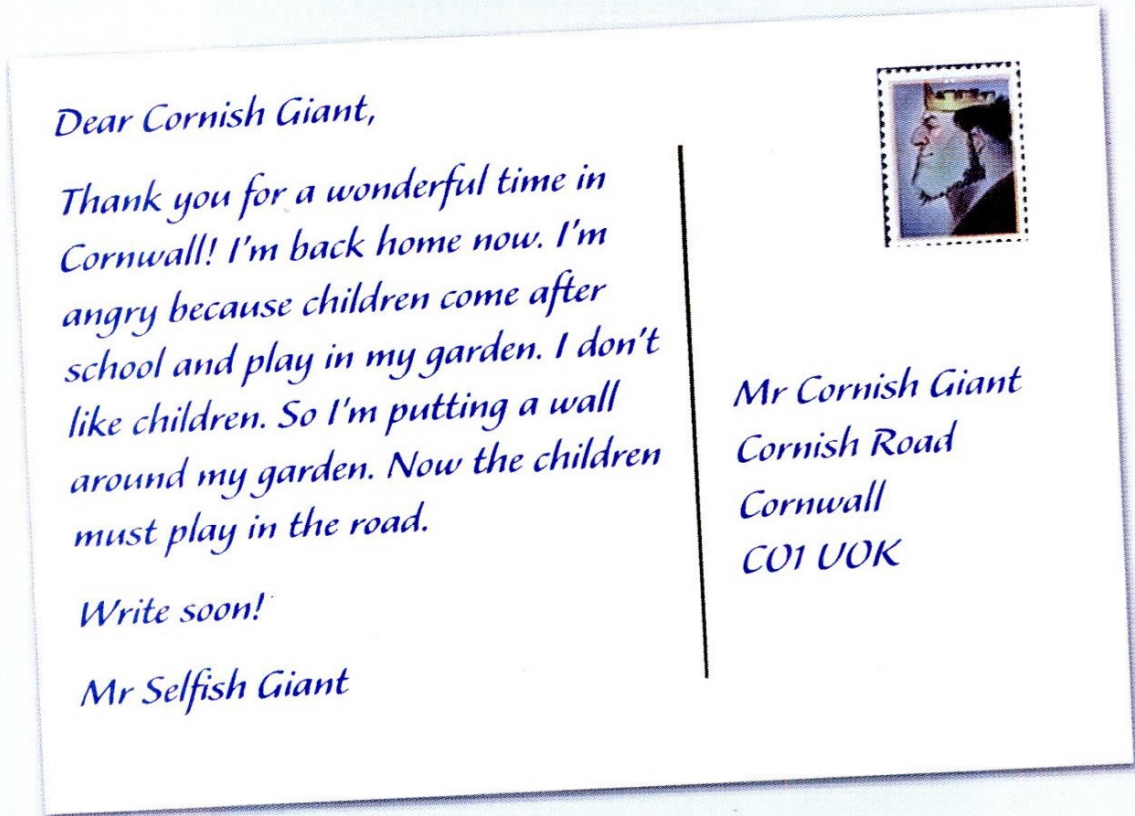 Dear Cornish Giant,
Thank you for a wonderful time in
Cornwall! I'm back home now. I'm
angry because children come after
school and play in my garden. I don't
like children. So I'm putting a wall
around my garden. Now the children
must play in the road.
Write soon!
Mr Selfish Giant
Mr Cornish Giant
Cornish Road
Cornwall
CO1 UOK